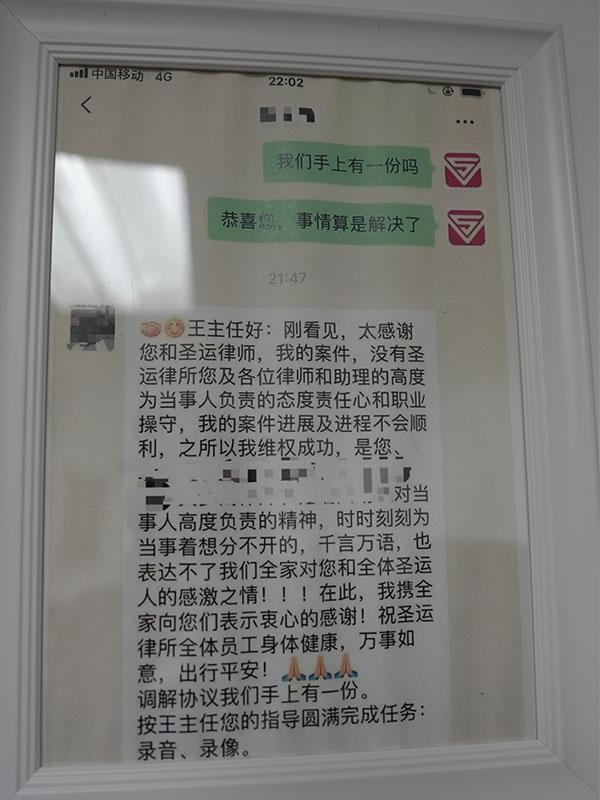 中国移动 4G
22:02
我们手上有一份吗
恭喜您，事情算是解决了
21:47
王主任好：刚看见，太感谢
您和圣运律师，我的案件，没有圣
运律所您及各位律师和助理的高度
为当事人负责的态度责任心和职业
操守，我的案件进展及进程不会顺
利，之所以我维权成功，是您、
对当
事人高度负责的精神，时时刻刻为
当事着想分不开的，千言万语，也
表达不了我们全家对您和全体圣运
人的感激之情！！！在此，我携全
家向您们表示衷心的感谢！祝圣运
律所全体员工身体健康，万事如
意，出行平安！
调解协议我们手上有一份。
按王主任您的指导圆满完成任务：
录音、录像。